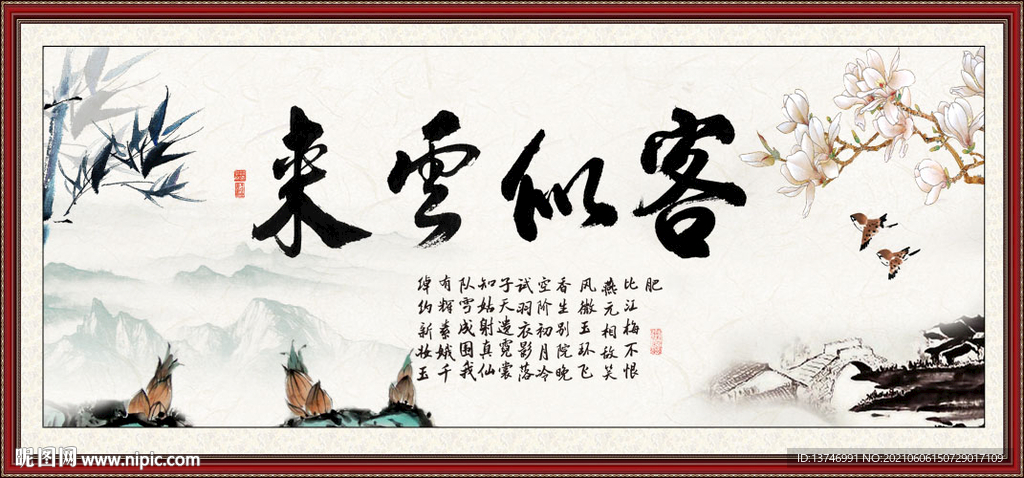 客似雲来
绰约新妆玉
有辉素娥千
队雪成围我
知姑射真仙
子天遣霓裳
试羽衣影落
空阶初月冷
香生别院晚
风微玉环飞
燕元相敌笑
比江梅不恨
肥
昵图网 www.nipic.com
ID:13746991 NO:20210606150729017109